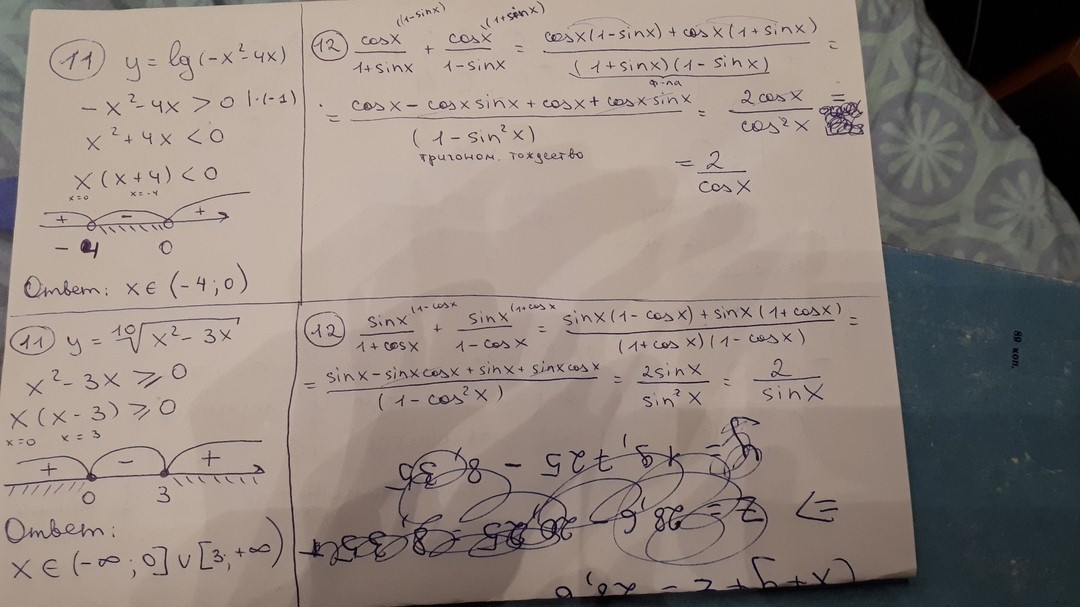 11 y = lg(-x²-4x)
-x²-4x > 0 |·(-1)
x²+4x < 0
x(x+4) < 0
x=0 x=-4
+ - +
-4 0
Ответ: x ∈ (-4; 0)
12 cosx (1-sinx) / 1+sinx + cosx (1+sinx) / 1-sinx = cosx(1-sinx)+cosx(1+sinx) / (1+sinx)(1-sinx) =
ф-ла
= cosx - cosx sinx + cosx + cosx sinx / (1-sin²x) = 2cosx / cos²x =
тригоном. тождество
= 2 / cosx
11 y = ¹⁰√x²-3x
x²-3x ⩾ 0
x(x-3) ⩾ 0
x=0 x=3
+ - +
0 3
Ответ:
x ∈ (-∞; 0] ∪ [3; +∞)
12 sinx (1-cosx) / 1+cosx + sinx (1+cosx / 1-cosx = sinx(1-cosx)+sinx(1+cosx) / (1+cosx)(1-cosx) =
= sinx-sinxcosx+sinx+sinxcosx / (1-cos²x) = 2sinx / sin²x = 2 / sinx
89 коп.